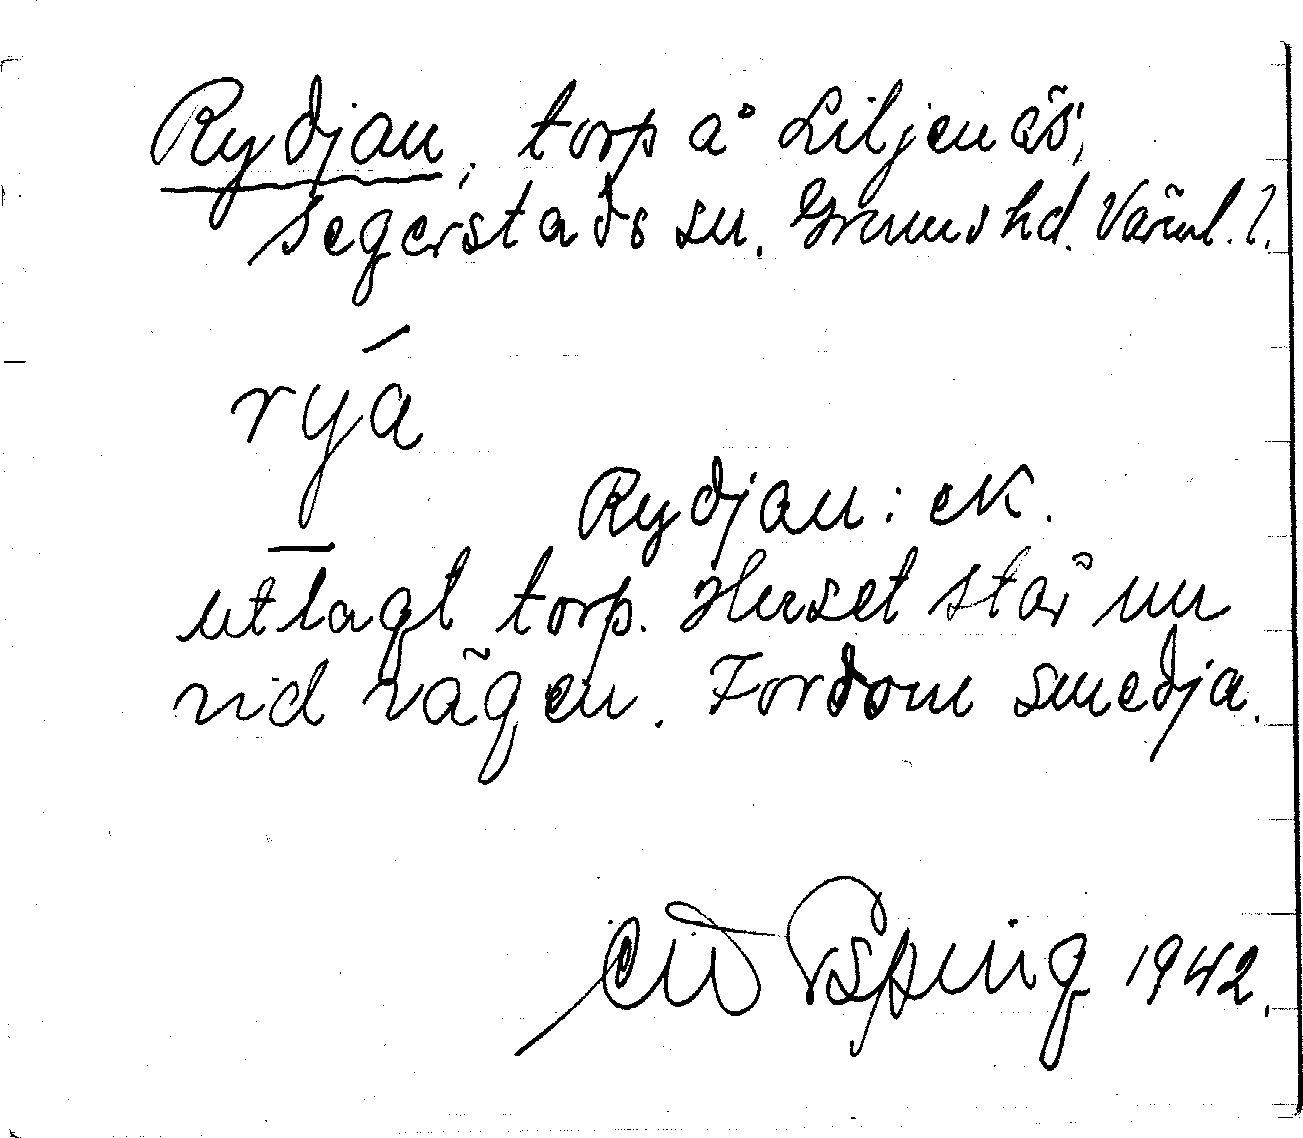 Rydjan, torp å Liljenäs,
Segerstads sn. Grums hd. Värml. l.
rýá
Rydjan: ek.
utlagt torp. Huset står nu
vid vägen. Fordom smedja.
1942.